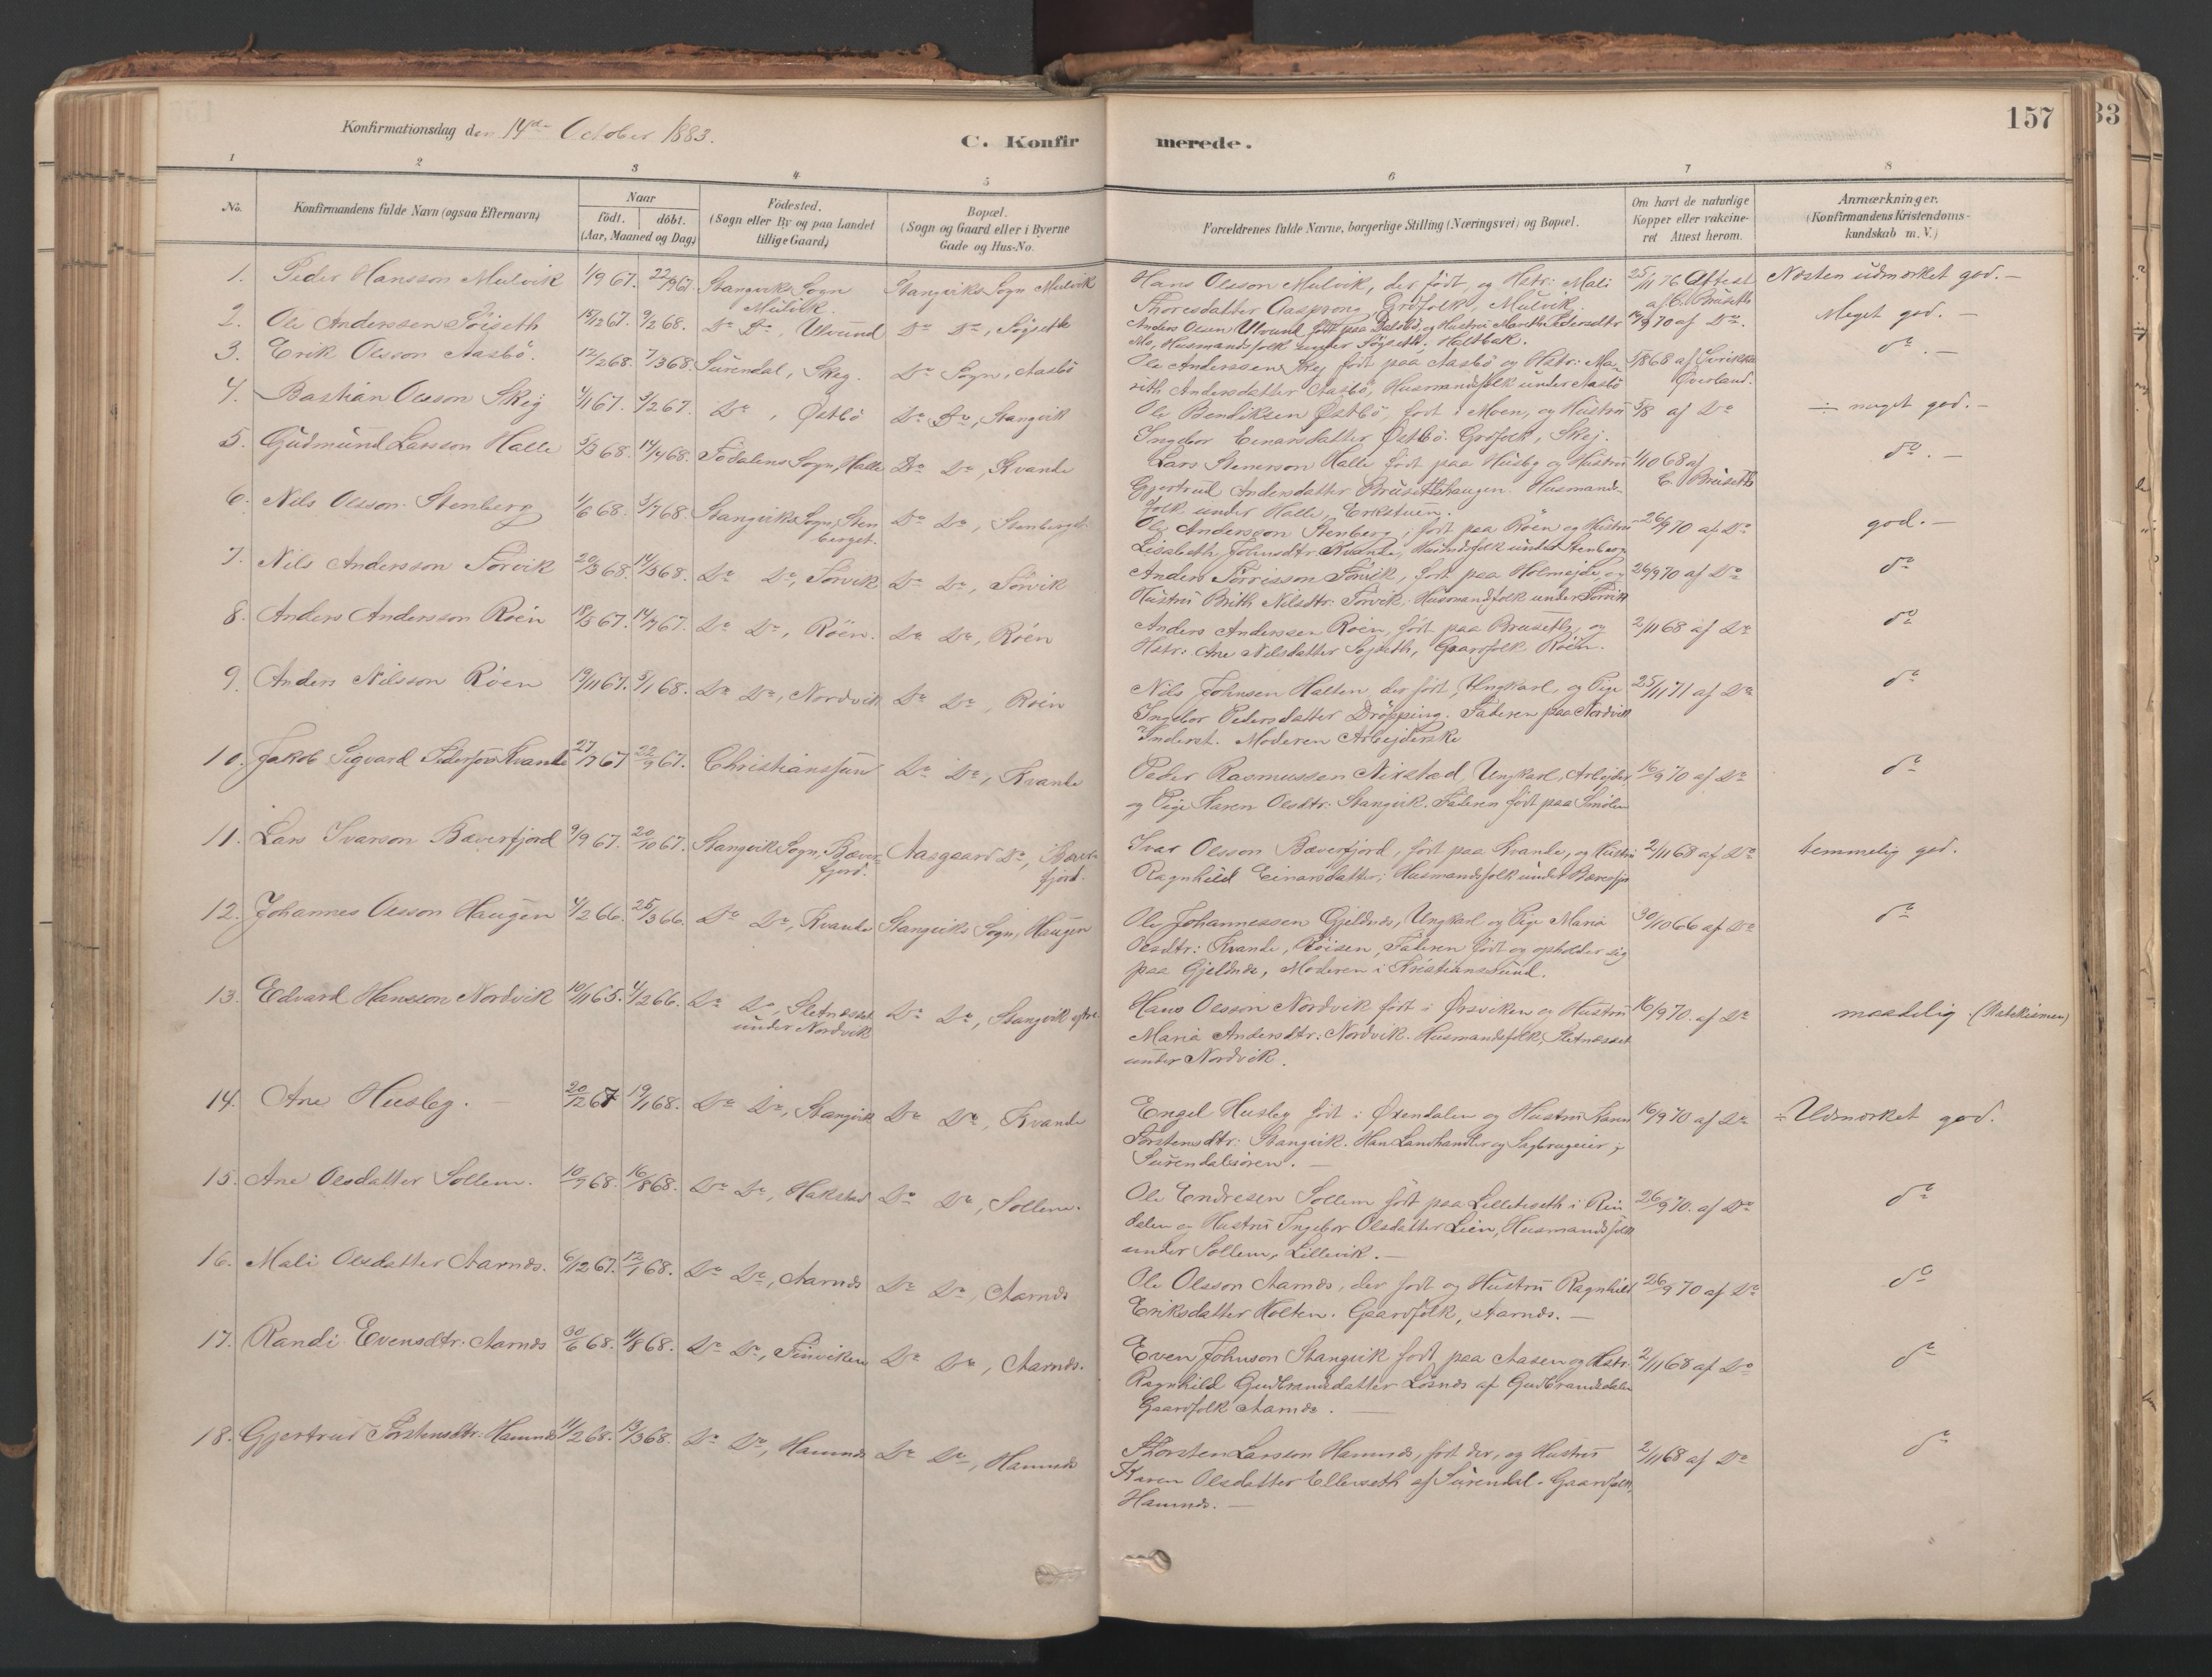 157
33
Konfirmationsdag den 14de October 1883.
C. Konfirmerede.
1 2 3 4 5 6 7 8
No.
Konfirmandens fulde Navn (ogsaa Efternavn)
Naar
födt. döbt.
(Aar, Maaned og Dag)
Födested.
(Sogn eller By og paa Landet
tillige Gaard)
Bopæl.
(Sogn og Gaard eller i Byerne
Gade og Hus-No.
Forældrenes fulde Navne, borgerlige Stilling (Næringsvei) og Bopæl.
Om havt de naturlige
Kopper eller vakcine-
ret Attest herom.
Anmærkninger.
(Konfirmandens Kristendoms-
kundskab m. V.)
1. Peder Hansson Mulvik 1/9 67. 22/9 67 Stangviks Sogn Mulvik. Stangviks Sogn Mulvik
Hans Olsson Mulvik, der född, og Hstr: Mali 25/11 76 Attest Næsten udmærket god. —
Thoresdatter Aasprong, Grdfolk, Mulvik. af C. Bruseth
2. Ole Anderssen Söiseth 15/12 67. 9/2 68. Do Do, Ulvund Do Do, Söyseth
Anders Olsen Ulvund född paa Dalsbö, og Hustru Marith Pedersdtr 19/9 70 af Do. Meget god. —
Mo, Husmandsfolk under Söyseth, Haltbak.
3. Erik Olsson Aasbö. 12/2 68. 7/3 68. Surendal, Skej. Do Sogn, Aasbö
Ole Anderssen Skej född paa Aasbö og Hstr: Ma- 5/8 68 af Do. —
rith Andersdatter Aasbö, Husmandsfolk under Aasbö Qverland.
4. Bastian Olsson Skej 4/11 67. 9/2 67. Do, Østbö Do Do, Stangvik
Ole Bendiksen Østbö, född i Moen, og Hustru 5/8 af Do ÷ meget god. —
Ingebor Einarsdatter Østbö. Grdfolk, Skej.
5. Gudmund Larsson Halle 5/3 68. 14/4 68. Todalens Sogn, Halle Do Do, Kvande
Lars Stenerson Halle född paa Husby og Hustru 1/10 68 af do. —
Gjertrud Andersdatter Brusethhaugen. Husmands- C. Bruseth
folk under Halle, Erikstuen.
6. Nils Olsson Stenberg 1/6 68. 5/7 68. Stangviks Sogn, Stenberget. Do Do, Stenberget
Ole Andersson Stenberg, född paa Röen og Hustru 26/9 70 af Do god. —
Lisabeth Johnsdtr Kvande, Husmdsfolk under Stenberg
7. Nils Andersson Torvik 20/3 68. 14/3 68. Do Do, Torvik Do Do, Torvik
Anders Torrisson Torvik, född paa Holmejde, og 26/9 70 af Do do
Hustru Brith Nilsdtr: Torvik, Husmandsfolk under Torvik
8. Anders Andersson Röen 18/5 67. 14/7 67. Do Do, Röen. Do Do, Röen
Anders Anderssen Röen, född paa Bruseth, og 2/11 68 af Do do
Hstr: Ane Nilsdatter Søjseth, Gaardfolk Röen.
9. Anders Nilsson Röen 19/11 67. 5/1 68. Do Do, Nordvik Do Do, Röen
Nils Johnsen Halten, der född, Ungkarl, og Pige 25/11 71 af Do do
Ingebor Pedersdatter Dröpping. Faderen paa Nordvik
Inderst. Moderen Arbejderske
10. Jakob Sigvard Pedersson Kvande 27/7 67 22/9 67. Christianssund Do Do, Kvande
Peder Rasmussen Nixstad, Ungkarl, Arbejder, 16/9 70 af Do do
og Pige Karen Olsdtr: Stangvik. Faderen född paa Smölen
11. Lars Ivarson Bæverfjord 9/9 67. 20/10 67. Stangvik Sogn, Bæverfjord. Aasgaard Do, Bæverfjord.
Ivar Olsson Bæverfjord, född paa Kvande, og Hustru 2/11 68 af Do temmelig god.
Ragnhild Einarsdatter, Husmandsfolk under Bæverfjor
12. Johannes Olsson Haugen 4/2 66. 25/3 66. Do Do, Kvande Stangviks Sogn, Haugen
Ole Johannessen Gjeldnæs, Ungkarl og Pige Maria 30/10 66 af Do do
Olsdtr: Kvande, Röisen, Faderen född og opholder sig
paa Gjeldnæs, Moderen i Kristianssund.
13. Edvard Hansson Nordvik 10/11 65. 4/2 66. Do Do, Sletnæsset under Nordvik Do Do, Stangvik øfre
Hans Olsson Nordvik född i Ørsviken og Hustru 16/9 70. af Do maadelig. (Katekismen)
Maria Andersdtr: Nordvik. Husmandsfolk, Sletnæsset
under Nordvik.
14. Ane Husby. — 20/12 67 19/1 68. Do Do, Stangvik Do Do, Kvande
Engel Husby född i Øxendalen og Hustru Karen 16/9 70 af Do ÷ Udmærket god.
Torstensdtr: Stangvik. Han Landhandler og Sagbrugeier i
Surendalsören. —
15. Ane Olsdatter Sollem. 10/7 68. 16/8 68. Do Do, Hakstad Do Do, Sollem.
Ole Endresen Sollem född paa Lilleteseth i Rin- 26/9 70. af Do do
dalen og Hustru Ingebor Olsdatter Lien, Husmandsfolk
under Sollem, Lillevik. —
16. Mali Olsdatter Aarnes. 6/12 67. 12/1 68. Do Do, Aarnes Do Do, Aarnes
Ole Olsson Aarnes, der född og Hustru Ragnhild 26/9 70 af Do do
Eriksdatter Holten. Gaardfolk, Aarnes. —
17. Randi Evensdtr. Aarnes 30/6 68. 4/8 68. Do Do, Finviken Do Do, Aarnes.
Even Johnson Stangvik född paa Aasen og Hstr: 2/11 68 af Do do
Ragnhild Gudbrandsdatter Løsnes af Gudbrandsdalen
Gaardfolk Aarnes. —
18. Gjertrud Torstensdtr: Hamnes 11/2 68. 13/3 68. Do Do, Hamnes Do Do, Hamnes
Thorsten Larsson Hamnes, född der, og Hustru 2/11 68 af Do do
Karen Olsdatter Ellevseth af Surendal. Gaardfolk,
Hamnes. —